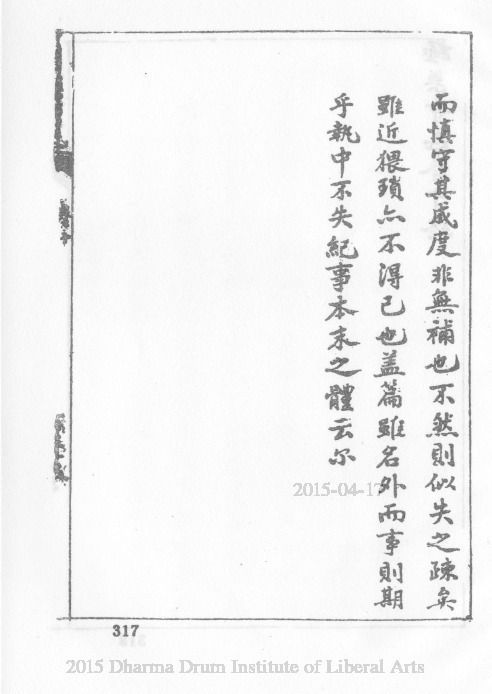 而慎守其成度非無補也不然則似失之疎矣
雖近猥瑣亦不得已也盖篇雖名外而事則期
乎執中不失紀事本末之體云尔
2015-04-17
317
2015 Dharma Drum Institute of Liberal Arts